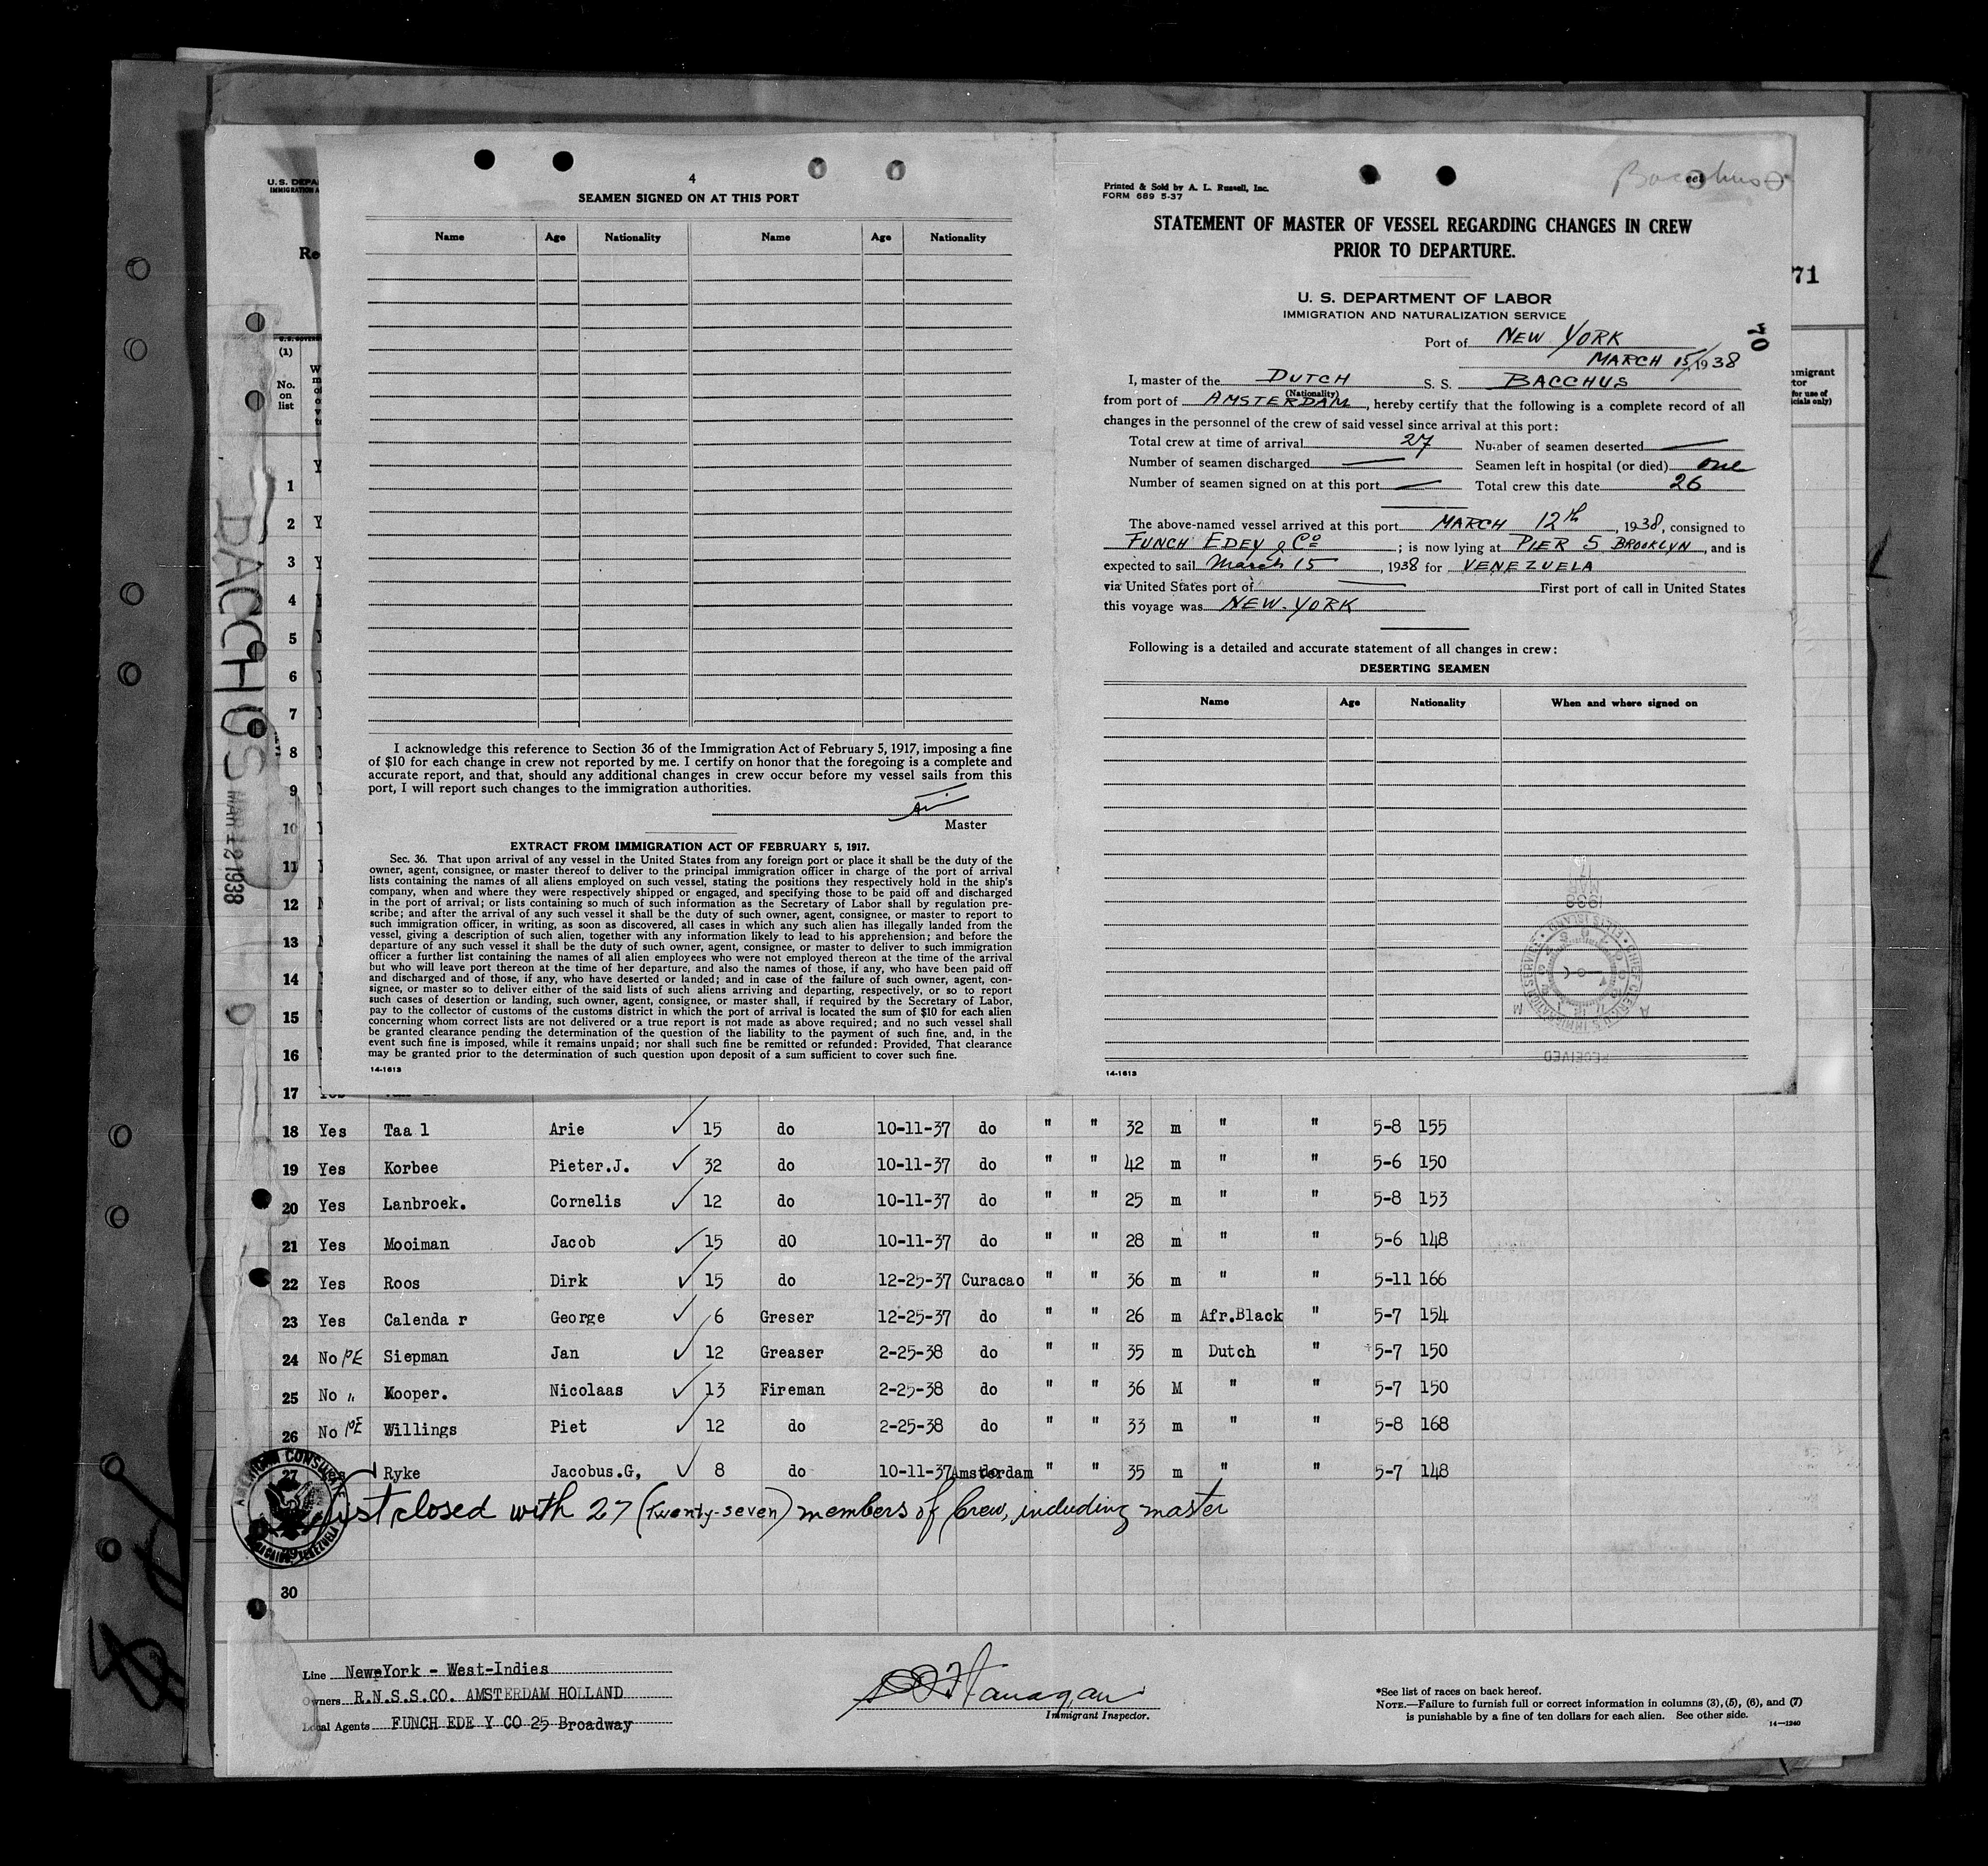 U. S. DEPA
IMMIGRATION A
Re
(1)
No.
on
list
BACCHUS
MAR 12 1938
4
SEAMEN SIGNED ON AT THIS PORT
Name Age Nationality Name Age Nationality
I acknowledge this reference to Section 36 of the Immigration Act of February 5, 1917, imposing a fine
of $10 for each change in crew not reported by me. I certify on honor that the foregoing is a complete and
accurate report, and that, should any additional changes in crew occur before my vessel sails from this
port, I will report such changes to the immigration authorities.
Master
EXTRACT FROM IMMIGRATION ACT OF FEBRUARY 5, 1917.
Sec. 36. That upon arrival of any vessel in the United States from any foreign port or place it shall be the duty of the
owner, agent, consignee, or master thereof to deliver to the principal immigration officer in charge of the port of arrival
lists containing the names of all aliens employed on such vessel, stating the positions they respectively hold in the ship's
company, when and where they were respectively shipped or engaged, and specifying those to be paid off and discharged
in the port of arrival; or lists containing so much of such information as the Secretary of Labor shall by regulation pre-
scribe; and after the arrival of any such vessel it shall be the duty of such owner, agent, consignee, or master to report to
such immigration officer, in writing, as soon as discovered, all cases in which any such alien has illegally landed from the
vessel, giving a description of such alien, together with any information likely to lead to his apprehension; and before the
departure of any such vessel it shall be the duty of such owner, agent, consignee, or master to deliver to such immigration
officer a further list containing the names of all alien employees who were not employed thereon at the time of the arrival
but who will leave port thereon at the time of her departure, and also the names of those, if any, who have been paid off
and discharged and of those, if any, who have deserted or landed; and in case of the failure of such owner, agent, con-
signee, or master so to deliver either of the said lists of such aliens arriving and departing, respectively, or so to report
such cases of desertion or landing, such owner, agent, consignee, or master shall, if required by the Secretary of Labor,
pay to the collector of customs of the customs district in which the port of arrival is located the sum of $10 for each alien
concerning whom correct lists are not delivered or a true report is not made as above required; and no such vessel shall
be granted clearance pending the determination of the question of the liability to the payment of such fine, and, in the
event such fine is imposed, while it remains unpaid; nor shall such fine be remitted or refunded: Provided, That clearance
may be granted prior to the determination of such question upon deposit of a sum sufficient to cover such fine.
14-1613
Bacchus
Printed & Sold by A. L. Russell, Inc.
FORM 689 5-37
STATEMENT OF MASTER OF VESSEL REGARDING CHANGES IN CREW
PRIOR TO DEPARTURE.
U. S. DEPARTMENT OF LABOR
IMMIGRATION AND NATURALIZATION SERVICE
70
71
Port of NEW YORK
MARCH 15/1938
I, master of the DUTCH S. S. BACCHUS
(Nationality)
from port of AMSTERDAM, hereby certify that the following is a complete record of all
changes in the personnel of the crew of said vessel since arrival at this port:
Total crew at time of arrival 27 Number of seamen deserted —
Number of seamen discharged — Seamen left in hospital (or died) one
Number of seamen signed on at this port — Total crew this date 26
The above-named vessel arrived at this port MARCH 12th, 1938, consigned to
FUNCH EDEY & Co; is now lying at PIER 5 BROOKLYN, and is
expected to sail March 15, 1938 for VENEZUELA
via United States port of — First port of call in United States
this voyage was NEW-YORK
Following is a detailed and accurate statement of all changes in crew:
DESERTING SEAMEN
Name Age Nationality When and where signed on
RECEIVED
14-1613
mmigrant
tor
for use of
icials only)
1
2
3
4
5
6
7
8
9
10
11
12
13
14
15
16
17
18 Yes Taa l Arie ✓ 15 do 10-11-37 do " " 32 m " " 5-8 155
19 Yes Korbee Pieter.J. ✓ 32 do 10-11-37 do " " 42 m " " 5-6 150
20 Yes Lanbroek. Cornelis ✓ 12 do 10-11-37 do " " 25 m " " 5-8 153
21 Yes Mooiman Jacob ✓ 15 dO 10-11-37 do " " 28 m " " 5-6 148
22 Yes Roos Dirk ✓ 15 do 12-25-37 Curacao " " 36 m " " 5-11 166
23 Yes Calenda r George ✓ 6 Greser 12-25-37 do " " 26 m Afr.Black " 5-7 154
24 No PE Siepman Jan ✓ 12 Greaser 2-25-38 do " " 35 m Dutch " 5-7 150
25 No " Kooper. Nicolaas ✓ 13 Fireman 2-25-38 do " " 36 M " " 5-7 150
26 No PE Willings Piet ✓ 12 do 2-25-38 do " " 33 m " " 5-8 168
27 Yes Ryke Jacobus.G, ✓ 8 do 10-11-37 Amsterdam " " 35 m " " 5-7 148
List closed with 27 (twenty-seven) members of Crew, including master
AMERICAN CONSULATE
VENEZUELA
29
30
Line New-York - West-Indies
Owners R.N.S.S.CO. AMSTERDAM HOLLAND
Local Agents FUNCH EDE Y CO 25 Broadway
Immigrant Inspector.
*See list of races on back hereof.
NOTE.—Failure to furnish full or correct information in columns (3), (5), (6), and (7)
is punishable by a fine of ten dollars for each alien. See other side.
14—1240